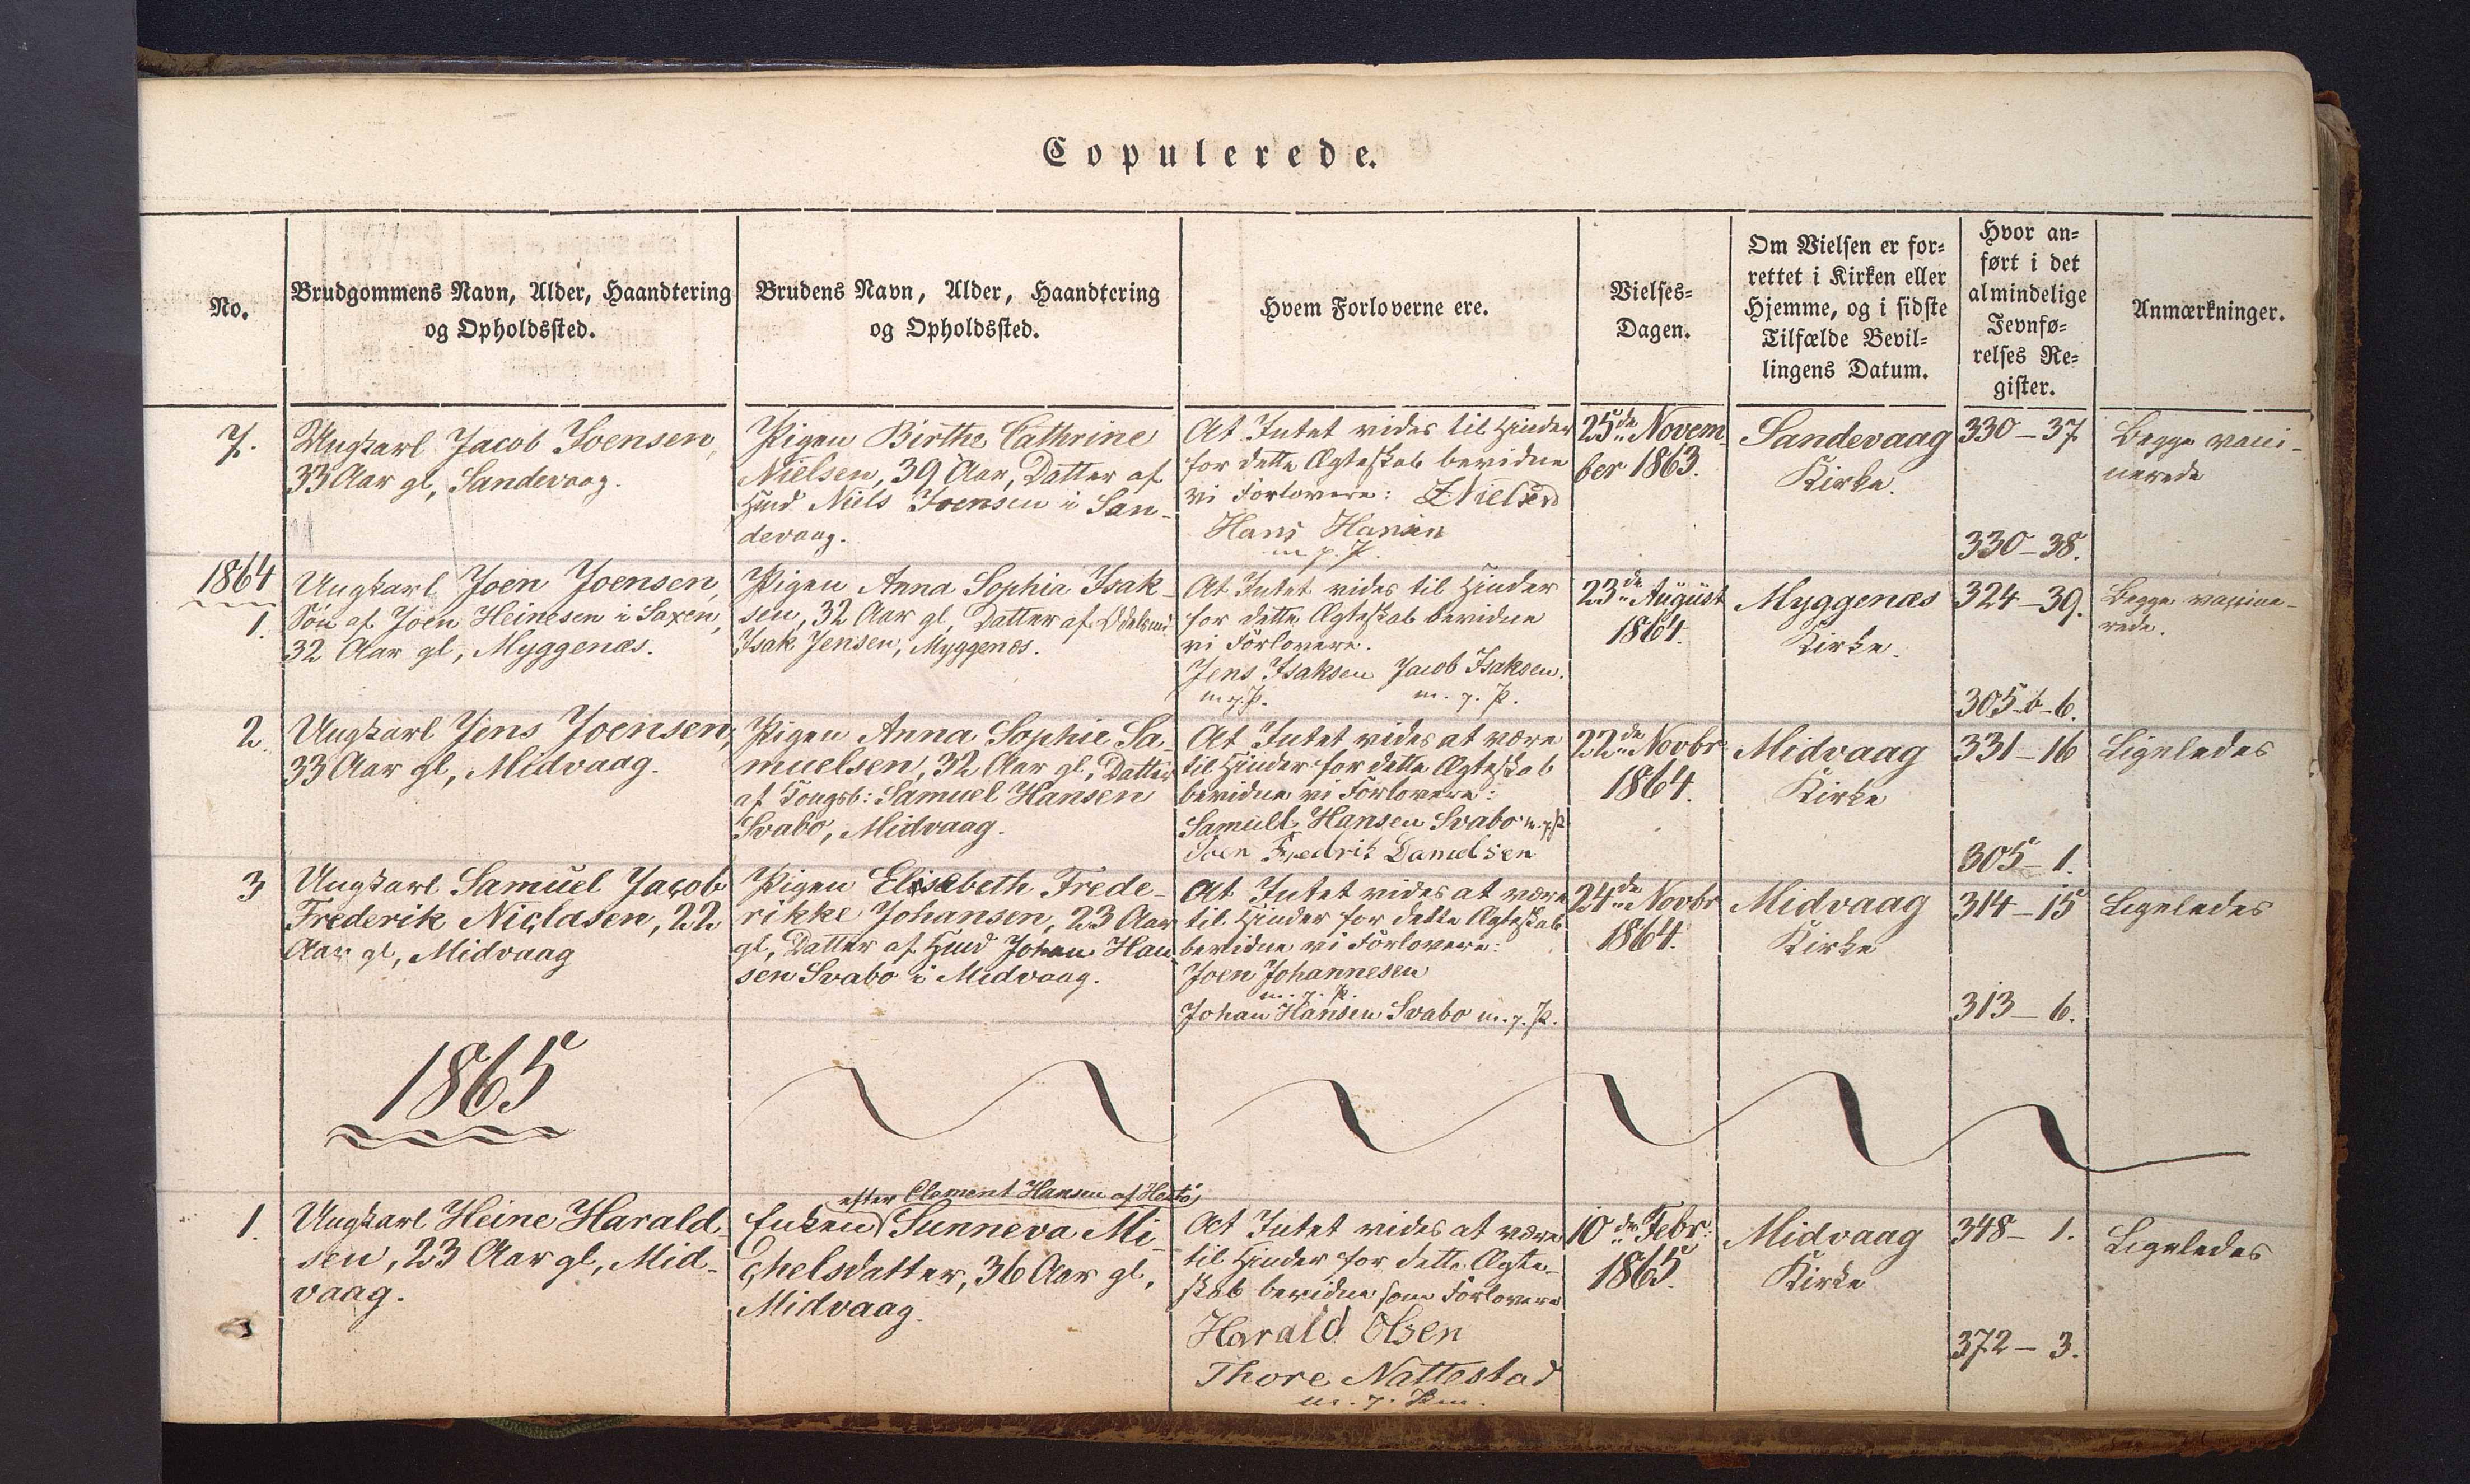 Copulerede.
No.
Brudgommens Navn, Alder, Haandtering
og Opholdssted.
Brudens Navn, Alder, Haandtering
og Opholdssted.
Hvem Forloverne ere.
Vielses-
Dagen.
Om Vielsen er for-
rettet i Kirken eller
Hjemme, og i sidste
Tilfælde Bevil-
lingens Datum.
Hvor an-
ført i det
almindelige
Jevnfø-
relses Re-
gister.
Anmærkninger.
7.
Ungkarl Jacob Joensen,
33 Aar gl, Sandevaag.
Pigen Birthe Cathrine
Nielsen, 39 Aar, Datter af
Huusmd Niels Joensen i San-
devaag.
At Intet vides til Hinder
for dette Ægteskab bevidne
vi Forlovere: Nielsen
Hans Hansen
m. p. P.
25de Novem-
ber 1863.
Sandevaag
Kirke.
330-37
330-38.
Begge vacci-
nerede
1864
1.
Ungkarl Joen Joensen,
Søn af Joen Heinesen i Saxen,
32 Aar gl, Myggenæs.
Pigen Anna Sophia Isak-
sen, 32 Aar gl, Datter af Odelsmd
Isak Jensen, Myggenæs.
At Intet vides til Hinder
for dette Ægteskab bevidne
vi Forlovere.
Jens Isaksen Jacob Isaksen.
m. p. P. m. p. P.
23de August
1864.
Myggenæs
Kirke.
324-39.
305-b-6.
Begge vaccine-
rede.
2
Ungkarl Jens Joensen,
33 Aar gl, Midvaag.
Pigen Anna Sophie Sa-
muelsen, 32 Aar gl, Datter
af Kongsb: Samuel Hansen
Svabo, Midvaag.
At Intet vides at være
til Hinder for dette Ægteskab
bevidne vi Forlovere:
Samuel Hansen Svabo m. p. P.
Joen Fredrik Danielsen
22de Novbr
1864.
Midvaag
Kirke
331-16
305-1.
Ligeledes
3
Ungkarl Samuel Jacob
Frederik Niclasen, 22
Aar gl, Midvaag
Pigen Elisebeth Frede-
rikke Johansen, 23 Aar
gl, Datter af Huusmd Johan Han-
sen Svabo i Midvaag.
At Intet vides at være
til Hinder for dette Ægteskab
bevidne vi Forlovere:
Joen Johannesen
m. p. P.
Johan Hansen Svabo m. p. P.
24de Novbr
1864.
Midvaag
Kirke
314-15
313-6.
Ligeledes
1865
1.
Ungkarl Heine Harald-
sen, 23 Aar gl, Mid-
vaag.
efter Clement Hansen af Hestø,
Enken Sunneva Mi-
chelsdatter, 36 Aar gl,
Midvaag.
At Intet vides at være
til Hinder for dette Ægte-
skab bevidne som Forlovere
Harald Olsen
Thore Nattestad
10de Febr:
1865.
Midvaag
Kirke
348-1.
372-3.
Ligeledes